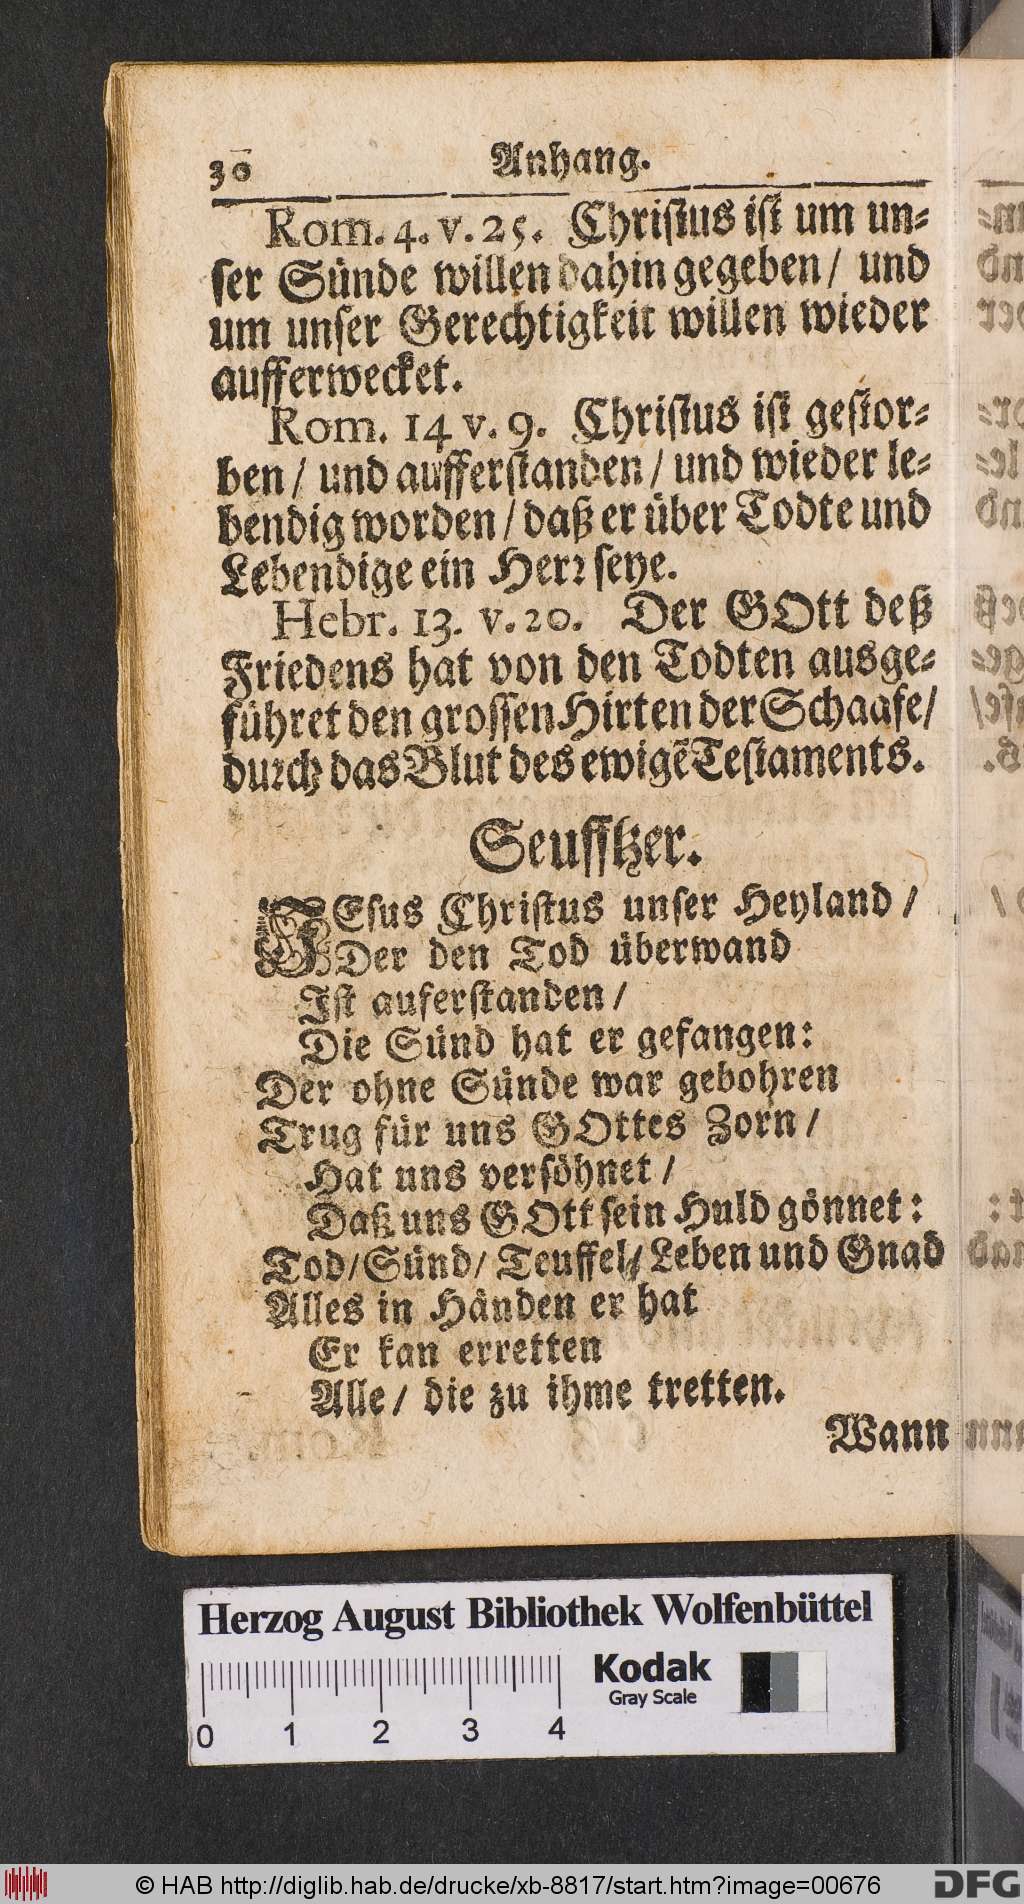 30 Anhang.
Rom. 4. v. 25. Chriſtus iſt um un⸗
ſer Sünde willen dahin gegeben / und
um unſer Gerechtigkeit willen wieder
aufferwecket.
Rom. 14 v. 9. Chriſtus iſt geſtor⸗
ben / und aufferſtanden / und wieder le⸗
bendig worden / daß er über Todte und
Lebendige ein Herꝛ ſeye.
Hebr. 13. v. 20. Der GOtt deß
Friedens hat von den Todten ausge⸗
führet den groſſen Hirten der Schaafe /
durch das Blut des ewigẽ Teſtaments.
Seuffzer.
JEſus Chriſtus unſer Heyland /
Der den Tod überwand
Iſt auferſtanden /
Die Sünd hat er gefangen:
Der ohne Sünde war gebohren
Trug für uns GOttes Zorn /
Hat uns verſöhnet /
Daß uns GOtt ſein Huld gönnet:
Tod / Sünd / Teuffel / Leben und Gnad
Alles in Händen er hat
Er kan erretten
Alle / die zu ihme tretten.
Wann
Herzog August Bibliothek Wolfenbüttel
Kodak
Gray Scale
0 1 2 3 4
© HAB http://diglib.hab.de/drucke/xb-8817/start.htm?image=00676
DFG